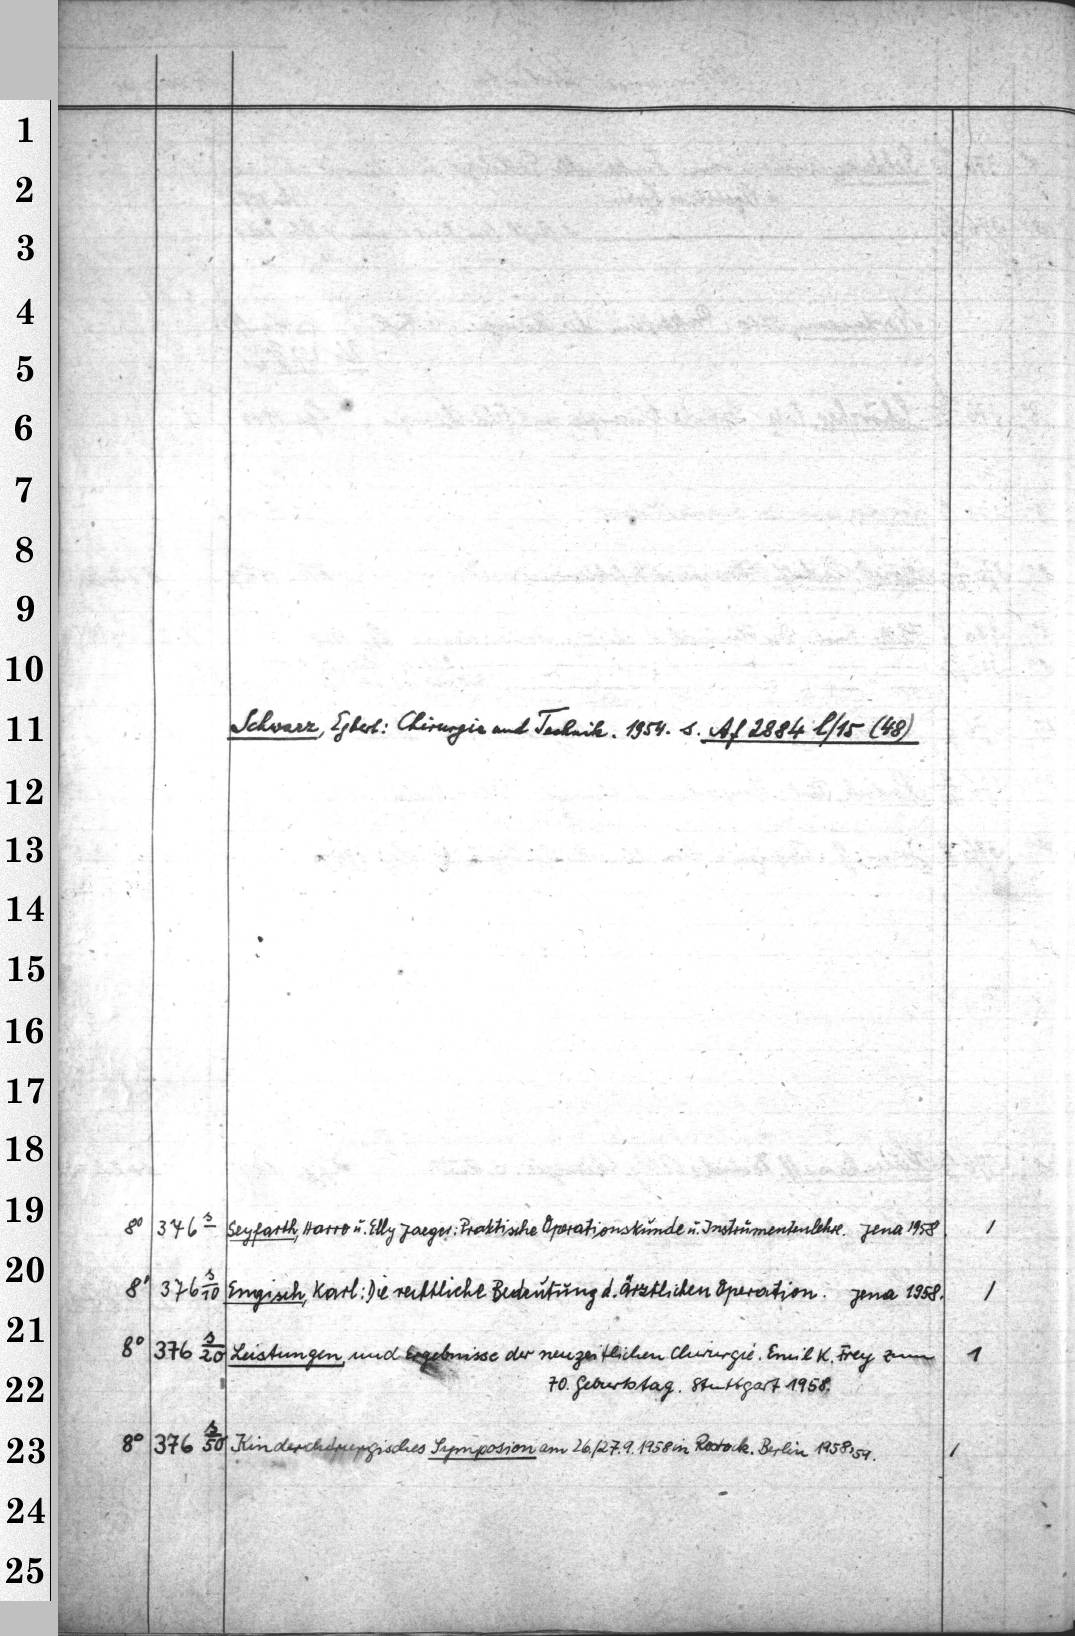 1
2
3
4
5
6
7
8
9
10
11 Schwarz, Egbert: Chirurgie und Technik. 1954. s. Af 2884 l/15 (48)
12
13
14
15
16
17
18
19 8° 376 s Seyfarth, Harro u. Elly Jaeger: Praktische Operationskunde u. Instrumentenlehre. Jena 1958. 1
20 8° 376 s/10 Engisch, Karl: Die rechtliche Bedeutung d. Ärztlichen Operation. Jena 1958. 1
21 8° 376 s/20 Leistungen und Ergebnisse der neuzeitlichen Chirurgie. Emil K. Frey zum 1
22 70. Geburtstag. Stuttgart 1958.
23 8° 376 s/50 Kinderchirurgisches Symposion am 26./27.9.1958 in Rostock. Berlin 1958,59. 1
24
25